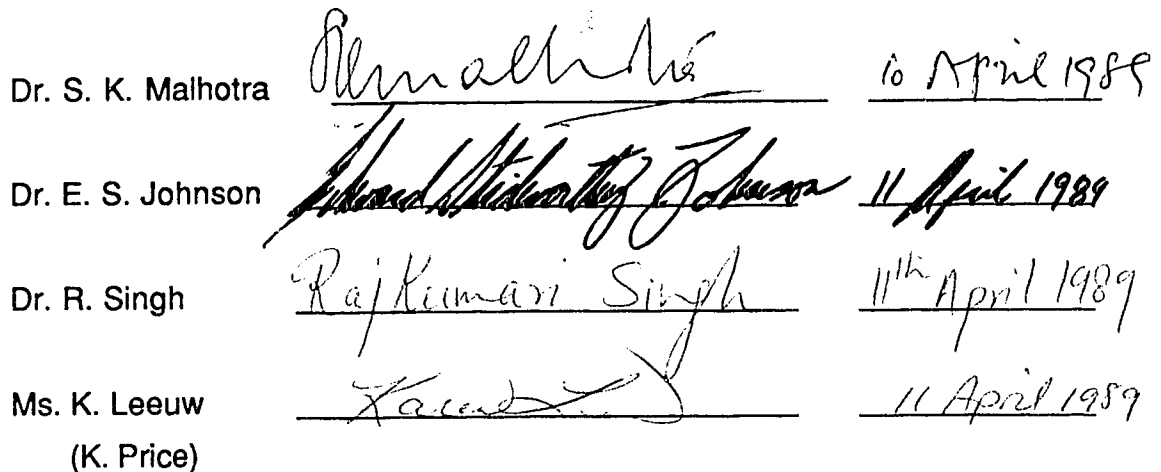 Dr. S. K. Malhotra SKMalhotra 10 April 1989
Dr. E. S. Johnson Edward Stidworthy Johnson 11 April 1989
Dr. R. Singh RajKumari Singh 11th April 1989
Ms. K. Leeuw 11 April 1989
(K. Price)